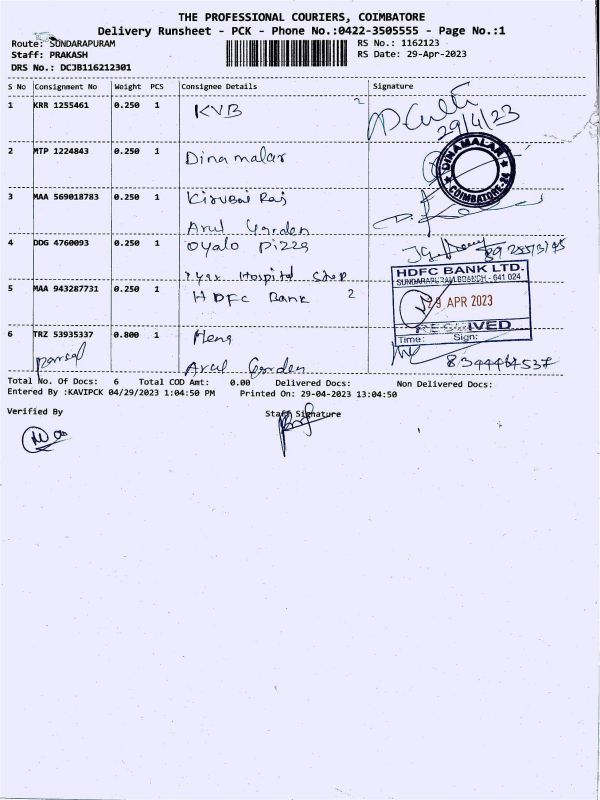 THE PROFESSIONAL COURIERS, COIMBATORE
Delivery Runsheet - PCK - Phone No.:0422-3505555 - Page No.:1
Route: SUNDARAPURAM RS No.: 1162123
Staff: PRAKASH RS Date: 29-Apr-2023
DRS No.: DCJB116212301
S No Consignment No Weight PCS Consignee Details Signature
1 KRR 1255461 0.250 1 KVB 2
29/4/23
2 MTP 1224843 0.250 1 Dinamalar
DINAMALAR
COIMBATORE-24
3 MAA 569018783 0.250 1 Kirubai Raj
Arul Garden
4 DDG 4760093 0.250 1 Oyalo Pizza
Hospital
5 MAA 943287731 0.250 1 HDFC Bank 2
HDFC BANK LTD.
SUNDARAPURAM BRANCH - 641 024
29 APR 2023
RECEIVED
Time: Sign:
6 TRZ 53935337 0.800 1
Parsal Arul Garden 8344464537
Total No. Of Docs: 6 Total COD Amt: 0.00 Delivered Docs: Non Delivered Docs:
Entered By :KAVIPCK 04/29/2023 1:04:50 PM Printed On: 29-04-2023 13:04:50
Verified By Staff Signature